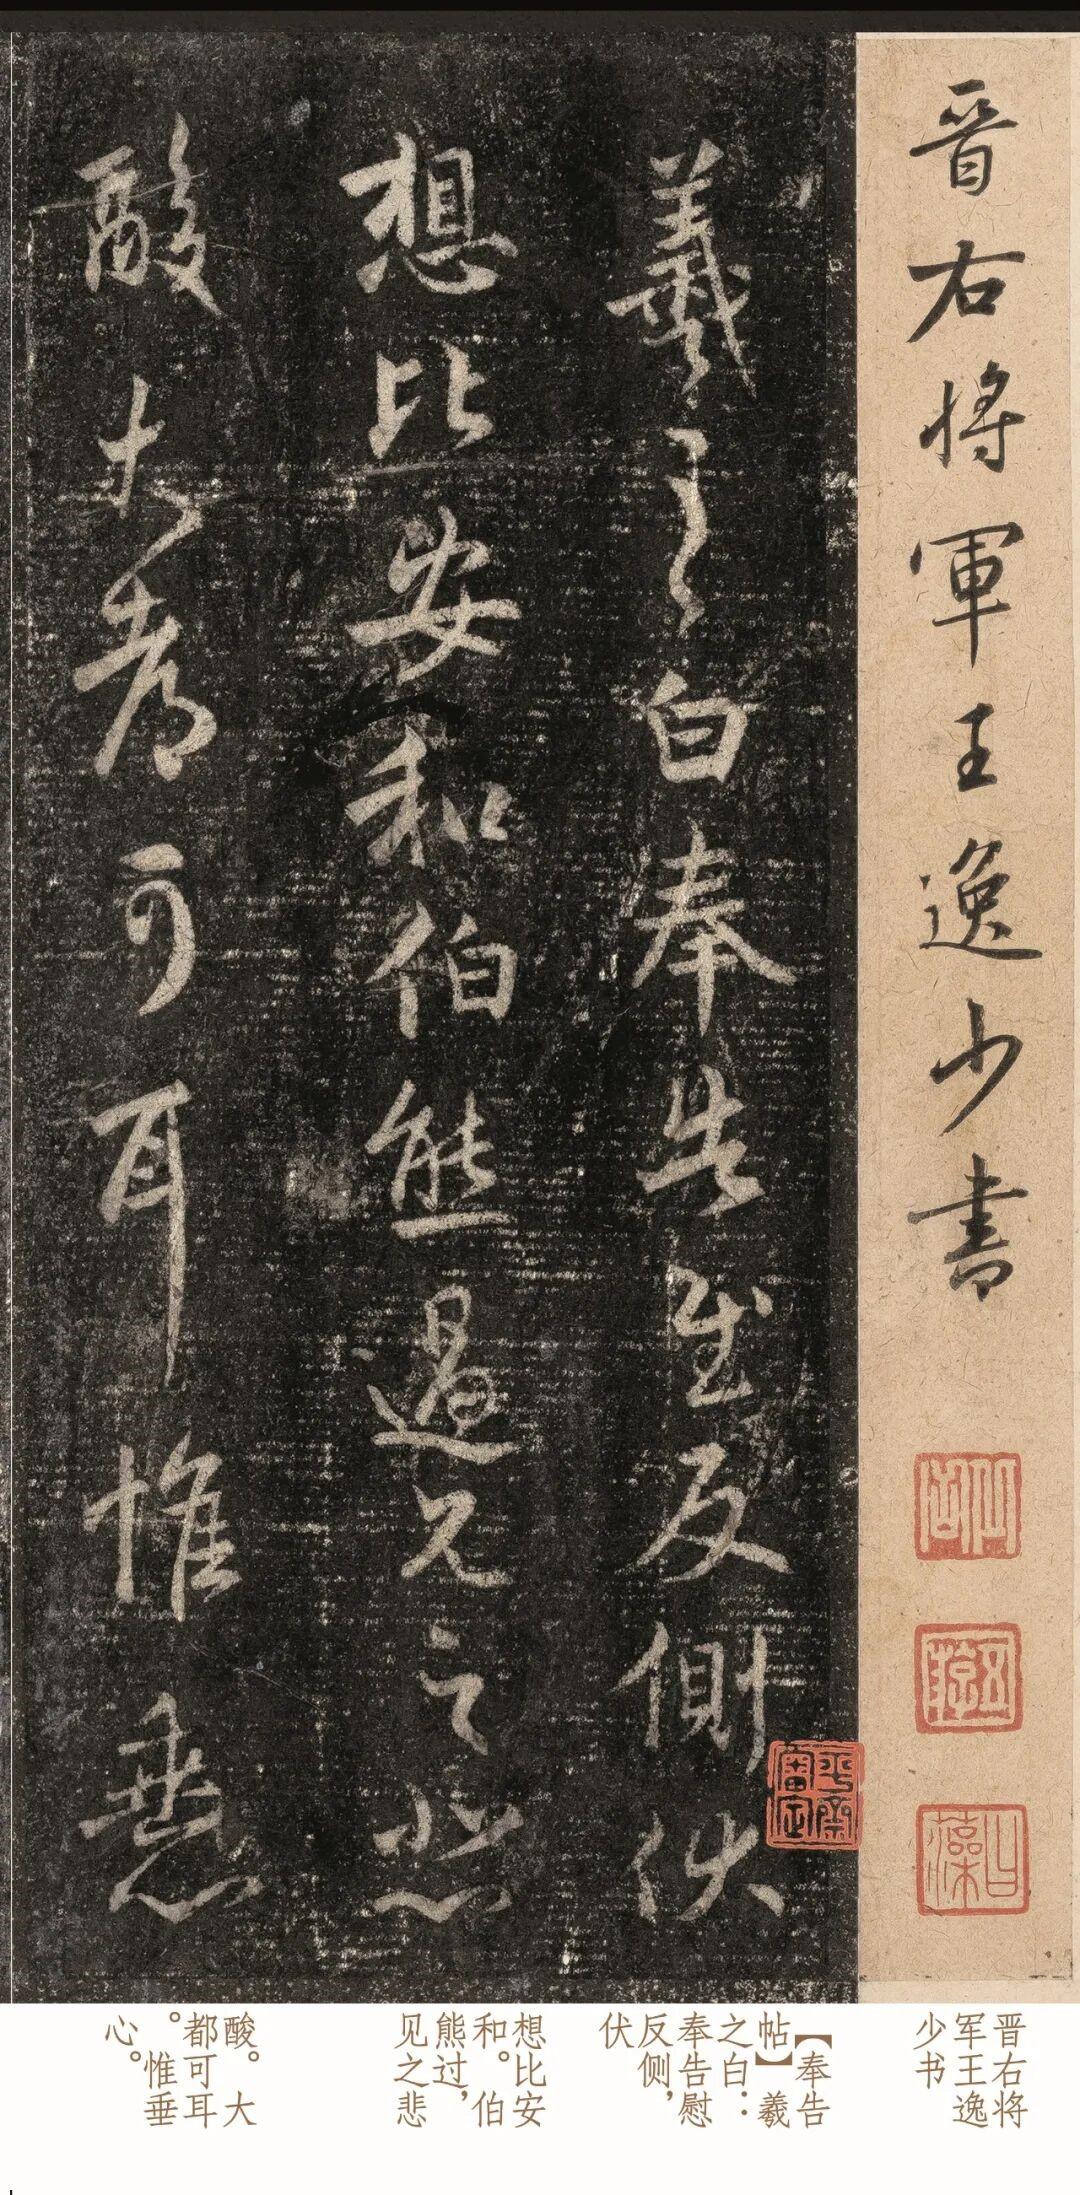 晋右将軍王逸少書
羲之白奉告慰反側伏
想比安和伯熊過見之悲
酸大都可耳惟垂心
平齋審定
晋右将
军王逸
少书
【奉告
帖】羲
之白：
奉告慰
反侧，
伏
想比安
和。伯
熊过，
见之悲
酸。大
都可耳
。惟垂
心。